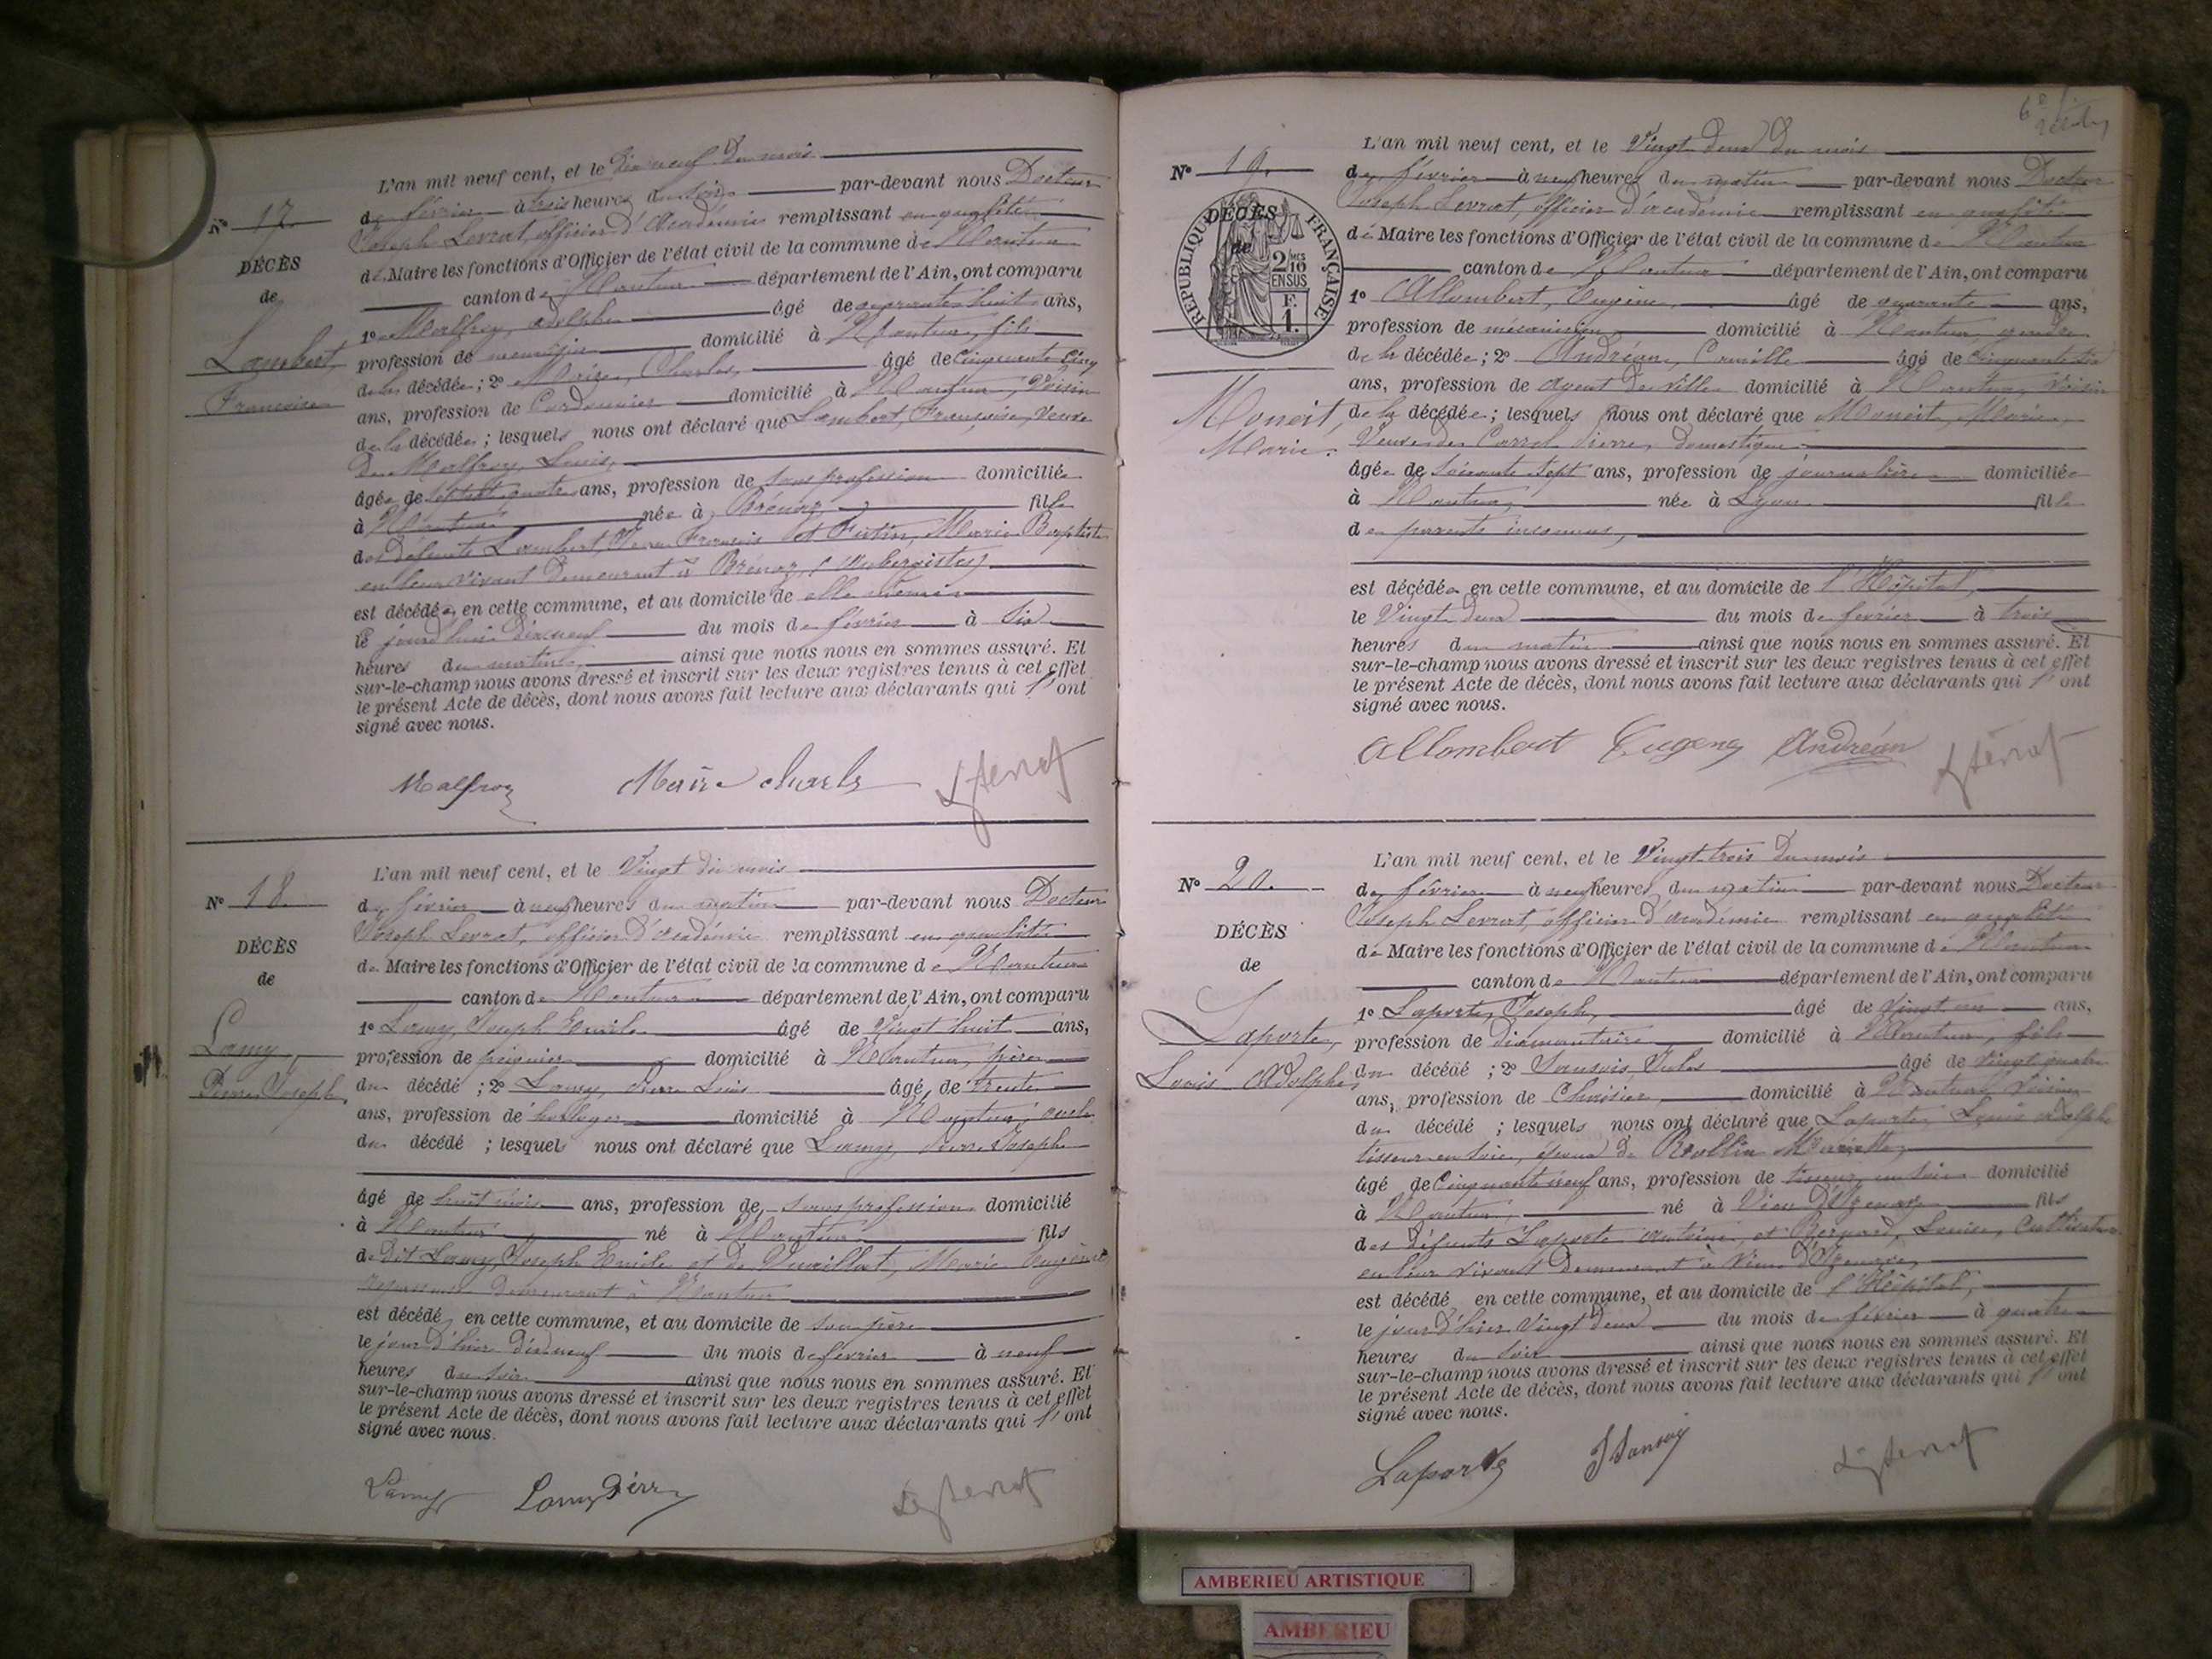 L'an mil neuf cent, et le dix neuf du mois
N° 17 de février à trois heures du soir par-devant nous Docteur
Joseph Levrat, officier d'Académie remplissant en qualité
DÉCÈS
de Maire les fonctions d'Officier de l'état civil de la commune de Nantua
de
canton de Nantua département de l'Ain, ont comparu
1° Malfroy, Adolphe âgé de quarante huit ans,
Lambert
profession de menuisier domicilié à Nantua, fils
de la décédée ; 2° Charles, âgé de Cinquante Cinq
Françoise
ans, profession de Cordonnier domicilié à Nantua, Voisin
de la décédée ; lesquels nous ont déclaré que Lambert, Françoise, Veuve
de Malfroy, Louis,
âgée de ans, profession de sans profession domiciliée
à Nantua née à Brénod fille
des défunts Lambert, Jean François et Marie Baptiste
en leur vivant demeurant à Brénod, (Aubergistes)
est décédée en cette commune, et au domicile de elle même
le jourd'hui dix neuf du mois de février à Six
heures du matin, ainsi que nous nous en sommes assuré. Et
sur-le-champ nous avons dressé et inscrit sur les deux registres tenus à cet effet
le présent Acte de décès, dont nous avons fait lecture aux déclarants qui l'ont
signé avec nous.
Malfroy charles
L'an mil neuf cent, et le Vingt du mois
N° 18 de février à neuf heures du matin par-devant nous Docteur
Joseph Levrat, officier d'académie remplissant en qualité
DÉCÈS
de Maire les fonctions d'Officier de l'état civil de la commune de Nantua
de
canton de Nantua département de l'Ain, ont comparu
1° Lamy, Joseph Emile âgé de Vingt huit ans,
Lamy,
profession de peignier domicilié à Nantua, père
Pierre Joseph,
du décédé ; 2° Lamy, Pierre Louis âgé de Trente
ans, profession de horloger domicilié à Nantua, oncle
du décédé ; lesquels nous ont déclaré que Lamy, Pierre Joseph
âgé de huit mois ans, profession de sans profession domicilié
à Nantua né à Nantua fils
de dit Lamy, Joseph Emile et de Vuaillat, Marie Eugénie
demeurant à Nantua
est décédé en cette commune, et au domicile de son père
le jour d'hier dix neuf du mois de février à neuf
heures du soir ainsi que nous nous en sommes assuré. Et
sur-le-champ nous avons dressé et inscrit sur les deux registres tenus à cet effet
le présent Acte de décès, dont nous avons fait lecture aux déclarants qui l'ont
signé avec nous.
Lamy Lamy Pierre
L'an mil neuf cent, et le Vingt deux du mois
N° 19. de février à neuf heures du matin par-devant nous Docteur
Joseph Levrat, officier d'académie remplissant en qualité
DÉCÈS
de
RÉPUBLIQUE FRANÇAISE
2/10 MES EN SUS
F. 1.
de Maire les fonctions d'Officier de l'état civil de la commune de Nantua
canton de Nantua département de l'Ain, ont comparu
1° Allombert, Eugène, âgé de quarante ans,
profession de mécanicien, domicilié à Nantua, gendre
de la décédée ; 2° Andréan, Camille âgé de Cinquante six
ans, profession de Agent de ville domicilié à Nantua, Voisin
Monoit,
de la décédée ; lesquels nous ont déclaré que Monoit, Marie,
Marie.
Veuve de Carrel Pierre, domestique
âgée de Soixante Sept ans, profession de journalière domiciliée
à Nantua, née à Lyon fille
de parents inconnus,
est décédée en cette commune, et au domicile de l'Hôpital,
le Vingt deux du mois de février à trois
heures du matin ainsi que nous nous en sommes assuré. Et
sur-le-champ nous avons dressé et inscrit sur les deux registres tenus à cet effet
le présent Acte de décès, dont nous avons fait lecture aux déclarants qui l'ont
signé avec nous.
Allombert Eugene Andréan
L'an mil neuf cent, et le Vingt trois du mois
N° 20. de février à neuf heures du matin par-devant nous Docteur
Joseph Levrat, officier d'académie remplissant en qualité
DÉCÈS
de Maire les fonctions d'Officier de l'état civil de la commune de Nantua
de
canton de Nantua département de l'Ain, ont comparu
1° Laporte, Joseph, âgé de Vingt un ans,
Laporte,
profession de diamantaire domicilié à Nantua, fils
Louis Adolphe,
du décédé ; 2° Jules âgé de Vingt quatre
ans, profession de Chaisier, domicilié à Nantua, Voisin
du décédé ; lesquels nous ont déclaré que Laporte, Louis Adolphe
tisseur en soie, époux de Rollin Mariette
âgé de Cinquante neuf ans, profession de tisseur en soie domicilié
à Nantua, né à Vieu d'Izenave fils
des défunts Laporte Antoine, et Bernard, Louise, Cultivateurs
en leur vivant demeurant à Vieu d'Izenave,
est décédé en cette commune, et au domicile de l'Hôpital,
le jour d'hier Vingt deux du mois de février à quatre
heures du soir ainsi que nous nous en sommes assuré. Et
sur-le-champ nous avons dressé et inscrit sur les deux registres tenus à cet effet
le présent Acte de décès, dont nous avons fait lecture aux déclarants qui l'ont
signé avec nous.
Laporte
AMBERIEU ARTISTIQUE
AMBERIEU